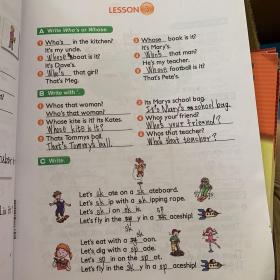 LESSON 3
A Write Who's or Whose.
1 Who's in the kitchen?
It's my uncle.
2 Whose boat is it?
It's Dave's.
3 Who's that girl?
That's Meg.
4 Whose book is it?
It's Mary's.
5 Who's that man?
He's my teacher.
6 Whose football is it?
That's Pete's.
B Write with '.
1 Whos that woman?
Who's that woman?
2 Whose kite is it? Its Kates.
Whose kite is it?
3 Thats Tommys ball.
That's Tommy's ball.
4 Its Marys school bag.
It's Mary's school bag.
5 Whos your friend?
Who's your friend?
6 Whos that teacher?
Who's that teacher?
C Write.
sk
Let's sk ate on a sk ateboard.
Let's sk ip with a sk ipping rope.
Let's sk i on sk is
Let's fly in the sk y in a sp aceship!
sk
Let's eat with a sp oon.
Let's dig with a sp ade.
Let's sp in on the sp ot.
Let's fly in the sk y in a sp aceship!